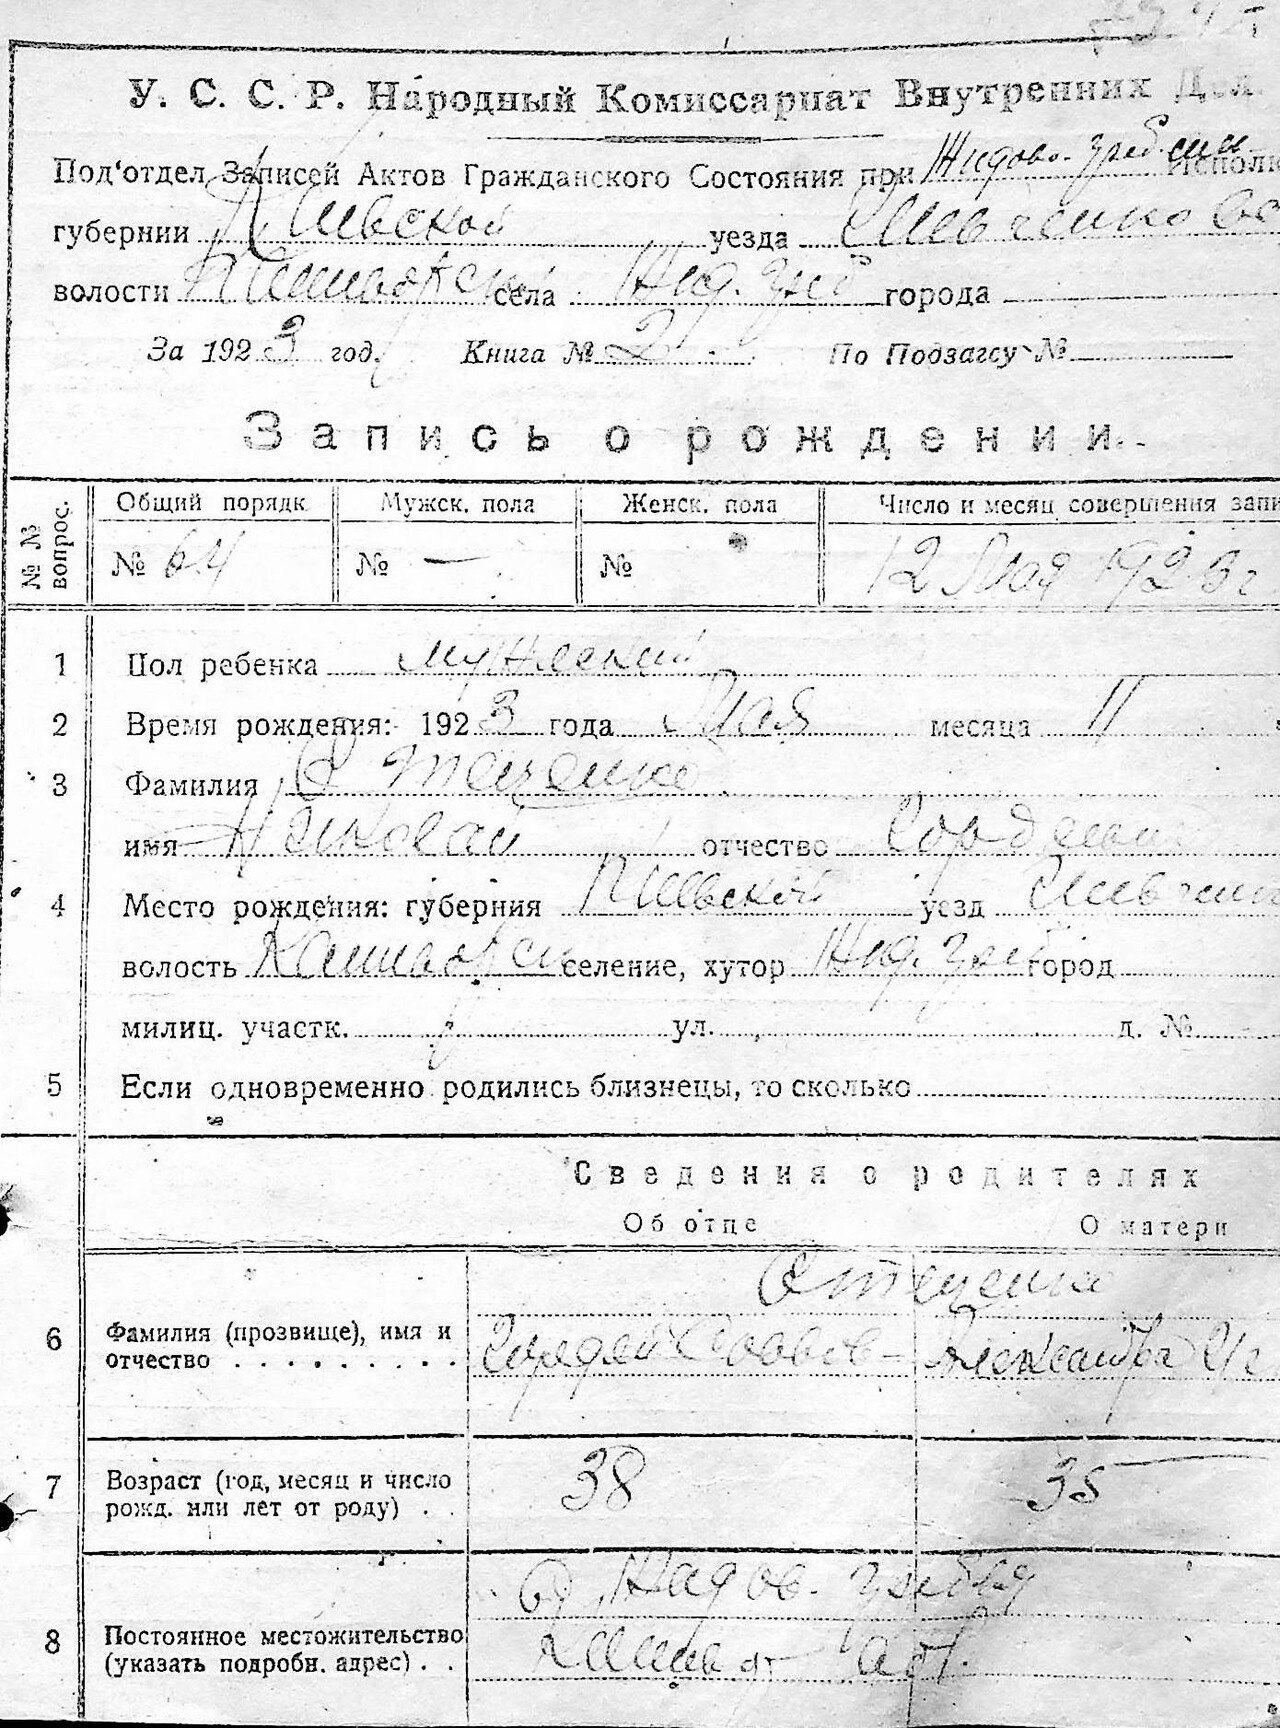 У. С. С. Р. Народный Комиссариат Внутренних Дел
Под‘отдел Записей Актов Гражданского Состояния при Жидово-Греб Исполк
губернии Киевской уезда Шевченковс
волости села Жид. Греб города
За 1923 год. Книга № 2 По Подзагсу №
Запись о рождении.
№ № вопрос. Общий порядк. Мужск. пола Женск. пола Число и месяц совершения запи
№ 64 № — № 12 Мая 1923 г
1 Пол ребенка мужеский
2 Время рождения: 1923 года Мая месяца 11
3 Фамилия
имя Николай отчество Гордеевич
4 Место рождения: губерния Киевской уезд Шевчен
волость селение, хутор Жид. Греб город
милиц. участк. ул. д. №
5 Если одновременно родились близнецы, то сколько
Сведения о родителях
Об отце О матери
6 Фамилия (прозвище), имя и
отчество . . . . . . . . . Гордей Александра
7 Возраст (год, месяц и число
рожд. или лет от роду) . . 38 35
8 Постоянное местожительство
(указать подробн. адрес) . .